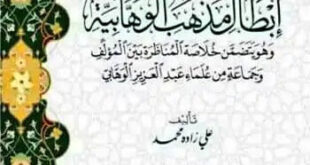 إبطال مذهب الوهابية
وهو يتضمن خلاصة المناظرة بين المؤلف
وجماعة من علماء عبد العزيز الوهابي
تأليف
علي زاده محمد